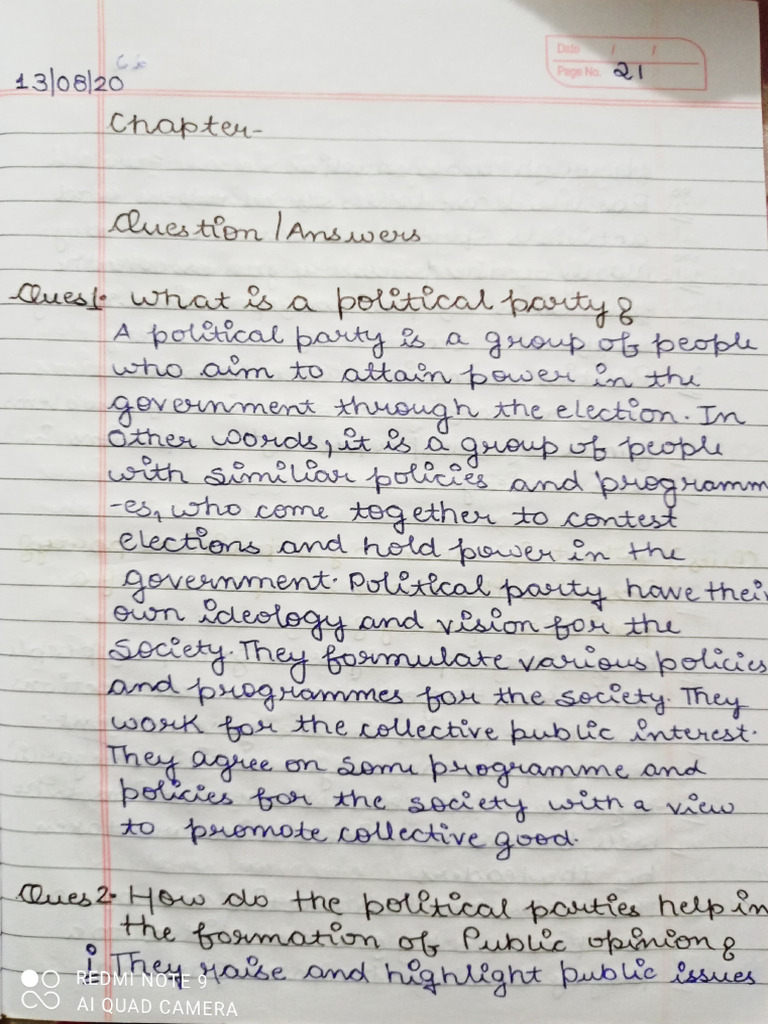 Date / /
13/08/20
Page No. 21
Chapter-
Question / Answers
Ques1. What is a political party?
A political party is a group of people
who aim to attain power in the
government through the election. In
other words, it is a group of people
with similiar policies and programm
-es, who come together to contest
elections and hold power in the
government. Political party have their
own ideology and vision for the
society. They formulate various policies
and programmes for the society. They
work for the collective public interest.
They agree on some programme and
policies for the society with a view
to promote collective good.
Ques2. How do the political parties help in
the formation of Public opinion?
i They raise and highlight public issues
REDMI NOTE 9
AI QUAD CAMERA